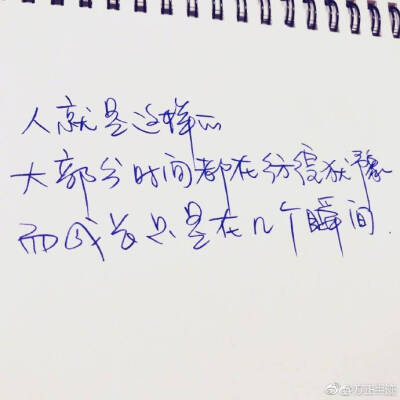 人就是这样的
大部分时间都在彷徨犹豫
而成长只是在几个瞬间.
@方正手迹